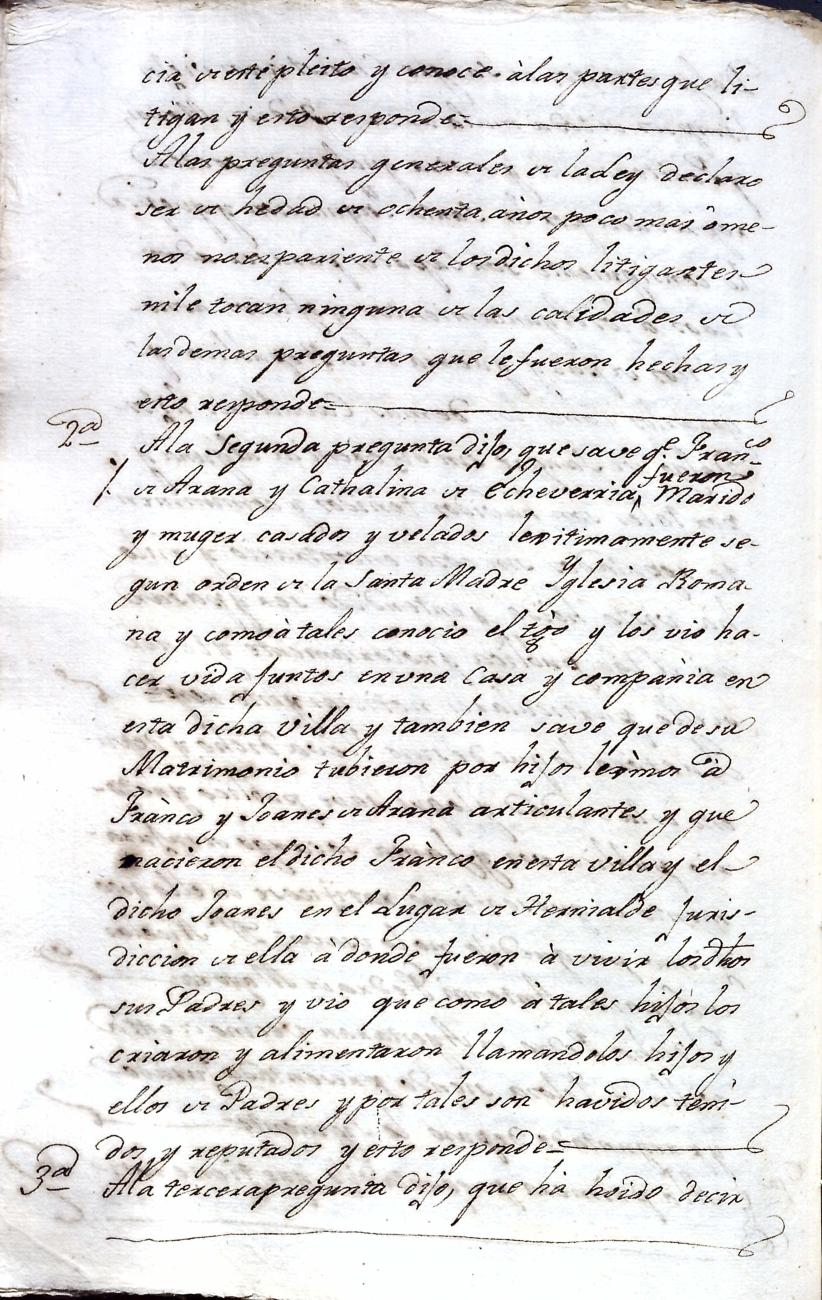 cia de este pleito y conoce à las partes que li-
tigan y esto responde=
A las preguntas generales de la Ley declaro
ser de hedad de ochenta años poco mas ô me-
nos no es pariente de los dichos litigantes
ni le tocan ninguna de las calidades de
las demas preguntas que le fueron hechas y
esto responde=
2ª
A la segunda pregunta dijo, que save qe. Franco
fueron
de Arana y Cathalina de Echeverria, Marido
y muger casados y velados lexitimamente se-
gun orden de la Santa Madre Yglesia Roma-
na y como à tales conocio el tgo y los vio ha-
cer vida juntos en una Casa y compañia en
esta dicha Villa y tambien save que de su
Matrimonio tubieron por hijos lexmos à
Franco y Joanes de Arana articulantes y que
nacieron el dicho Franco en esta villa y el
dicho Joanes en el Lugar de Hernialde juris-
diccion de ella à donde fueron à vivir los dhos
sus Padres y vio que como à tales hijos los
criaron y alimentaron llamandolos hijos y
ellos de Padres y por tales son havidos teni-
dos y reputados y esto responde=
3ª
A la tercera pregunta dijo, que hà hoido decir